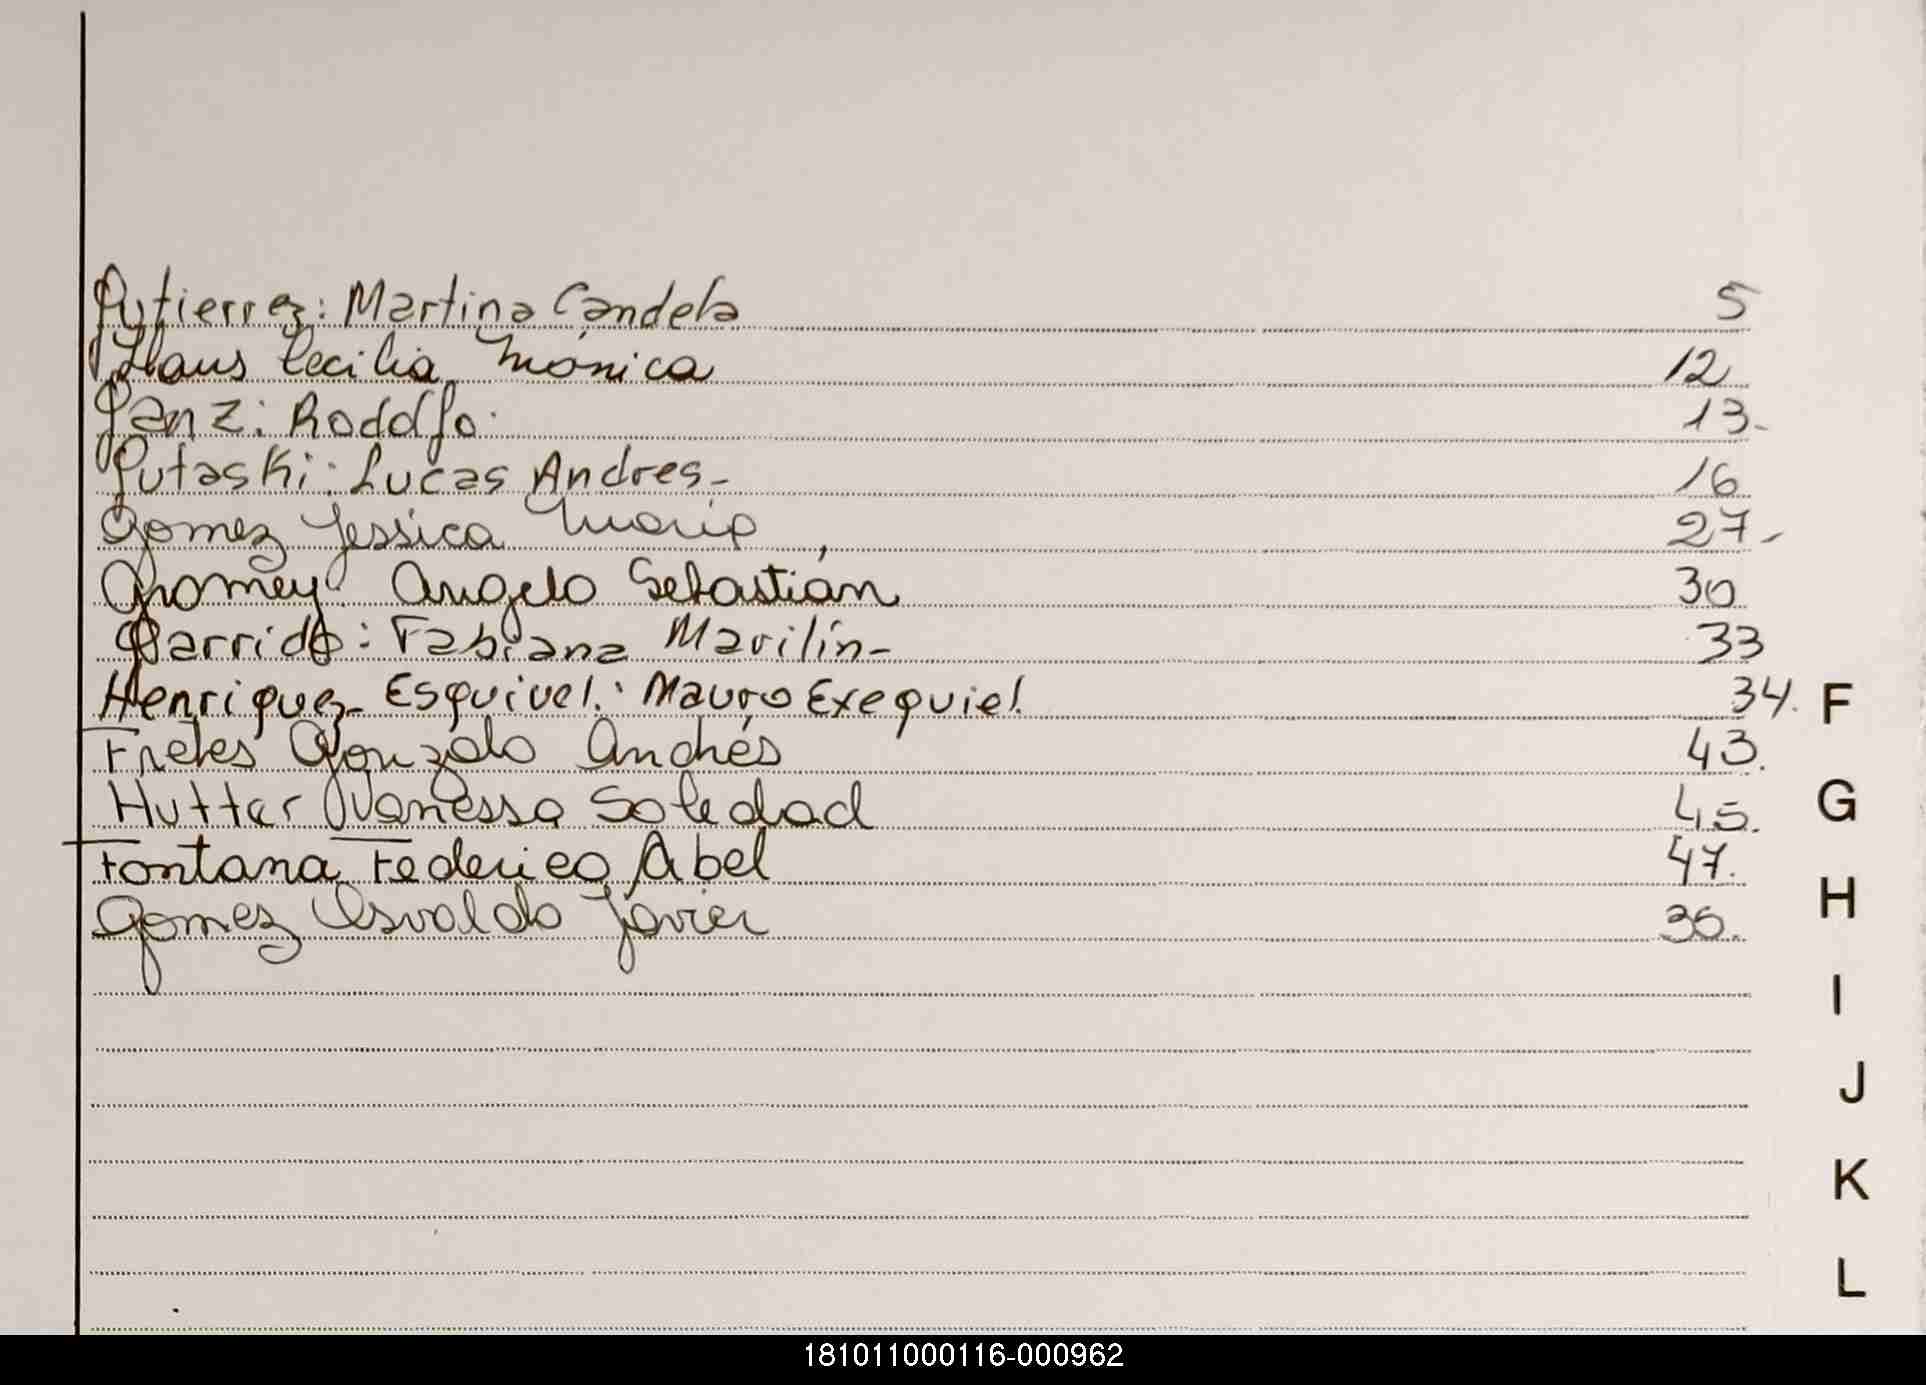 Gutierrez: Martina Candela 5
Haus Cecilia Mónica 12
Ganz: Rodolfo. 13-
Gutaski: Lucas Andres- 16
Gomez Jessica Maria 27-
Gromey Angelo Sebastián 30
Garrido: Fabiana Marilín- 33
Henriquez- Esquivel: Mauro Exequiel. 34. F
Fretes Gonzalo Andrés 43.
Hutter Vanessa Soledad 45. G
Fontana Federico Abel 47.
Gomez Osvaldo Javier 36. H
I
J
K
L
181011000116-000962